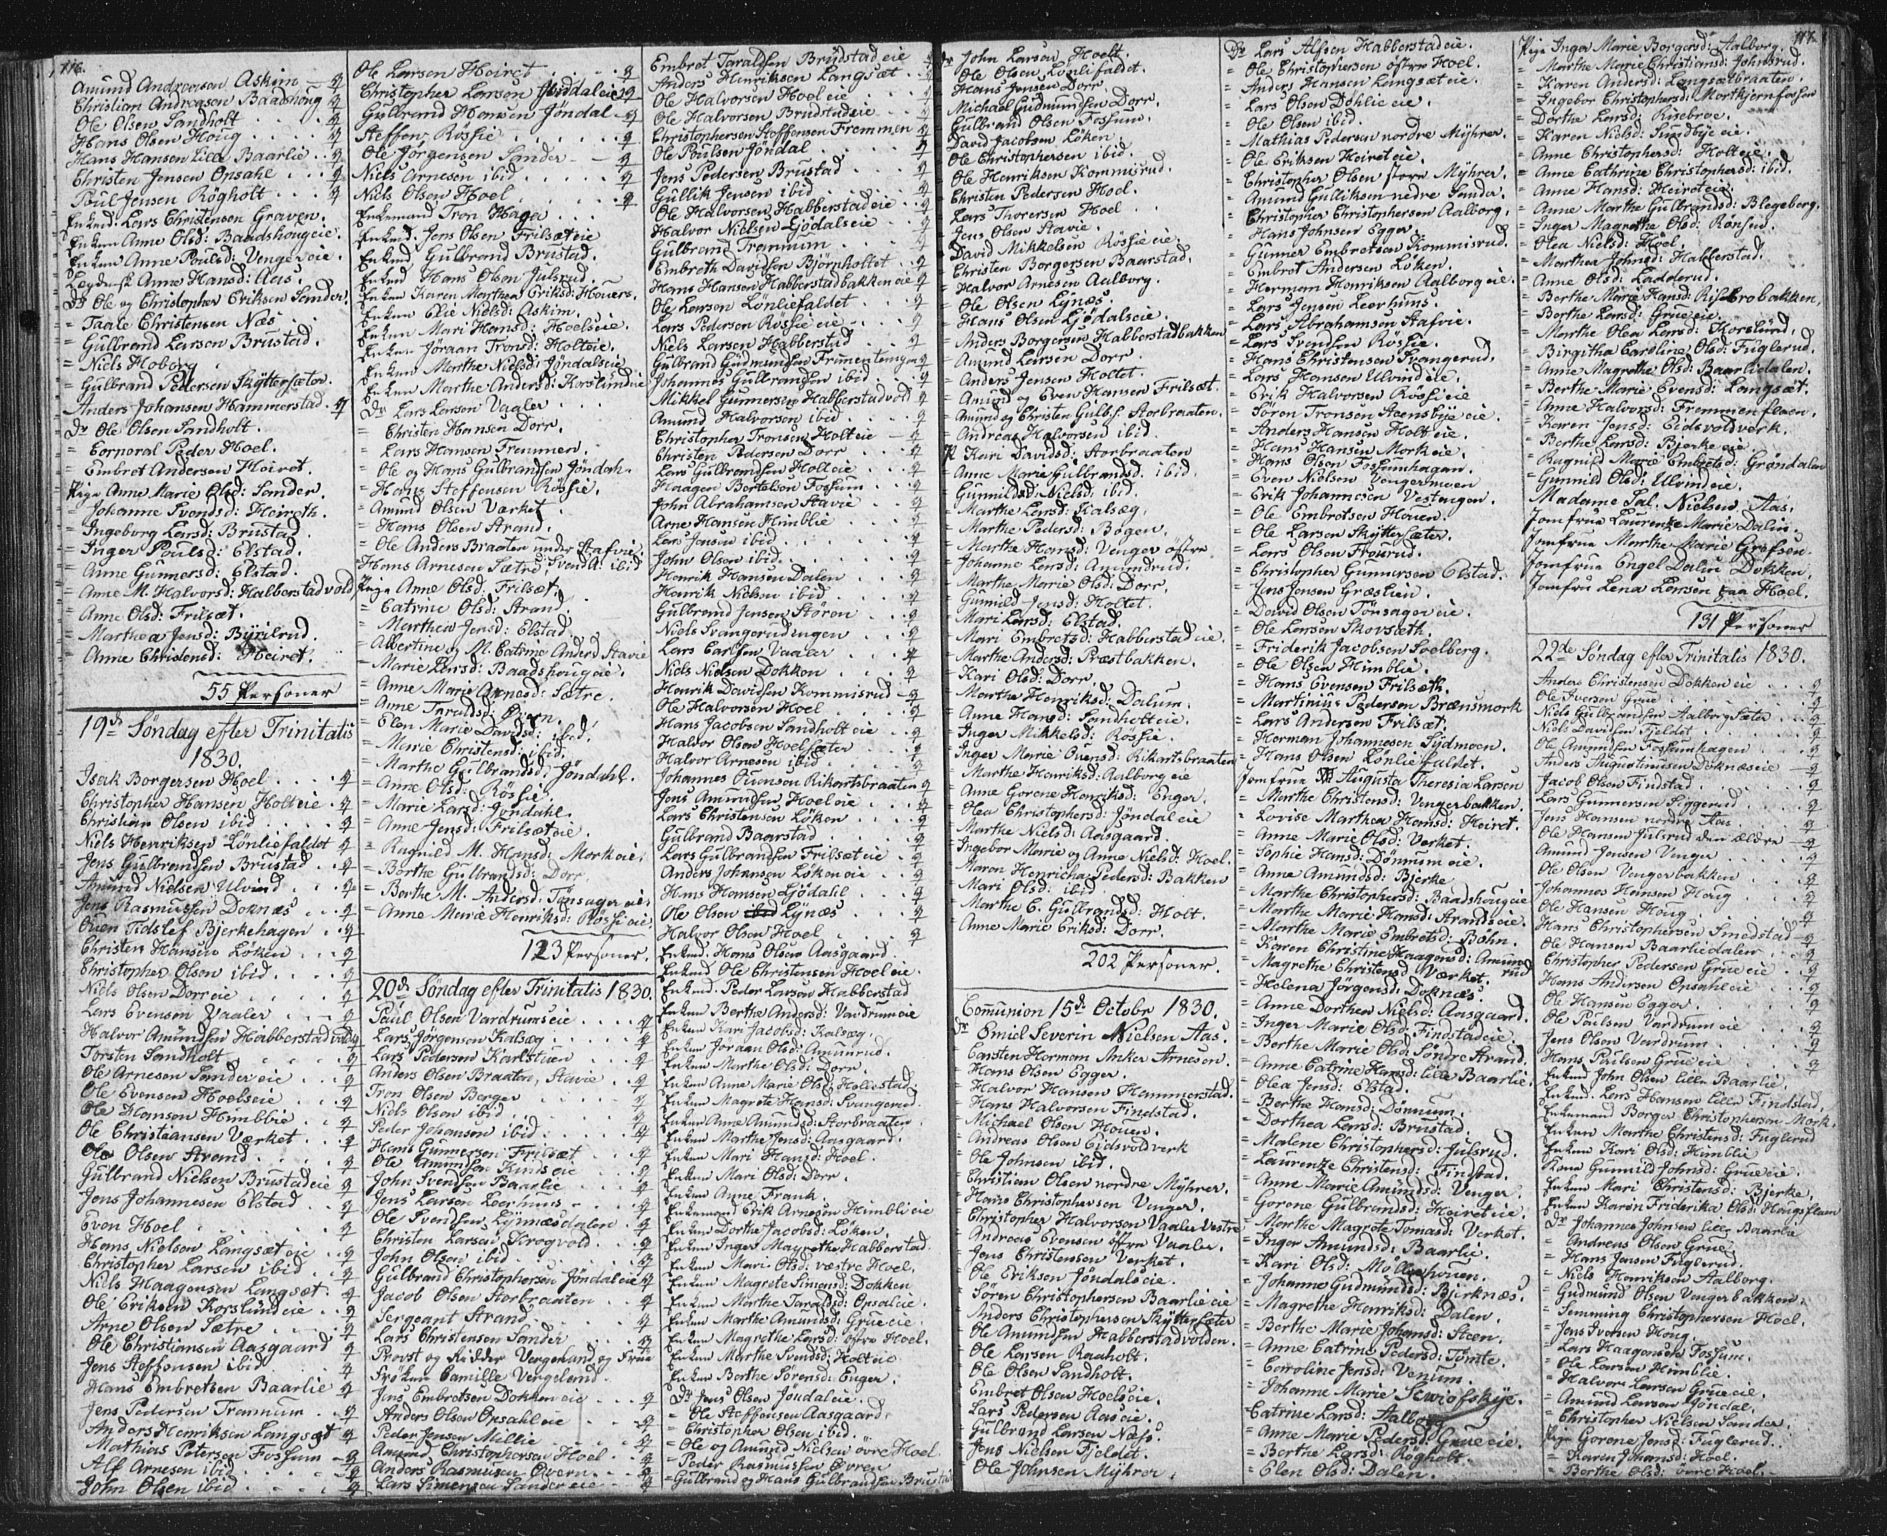 116.
Amund Andreasen Askim - q
Christian Andreasen Baadshoug q
Ole Olsen Sandholt . . q
Hans Olsen Houg . . . q
Hans Hansen Lille Baarlie . . q
Christen Jensen Opsahl . . q
Poul Jensen Rögholt . . q
Enkmd. Lars Christensen Graven.
Enken Anne Olsd: Baadshougeie.
Enken Anne Pouls d: Vengereie.
Anne Hansd: Aas.
Dr Ole og Christopher Eriksen Sander.
= Taale Christensen Næs
= Gulbrand Larsen Brustad.
= Niels Hoborg
= Gulbrand Pedersen Skyttersæter.
Anders Johansen Hammerstad. q
Dr Ole Olsen Sandholt.
= Corporal Peder Hoel.
= Embret Andersen Heiret.
Pige Anne Marie Olsd: Sander.
= Johanne Svendsd: Heireth.
= Ingeborg Larsd: Brustad.
= Inger Poulsd: Elstad.
= Anne Gunnersd: Elstad.
= Anne M. Halvorsd: Halberstadvold
= Anne Olsd: Frilsæt.
= Marthea Jensd: Byrilrud.
= Anne Christensd: Heiret.
55 Personer
19de Søndag efter Trinitatis
1830.
Isak Borgersen Hoel . . . q
Christopher Hansen Holteie . q
Christian Olsen ibid . . . q
Niels Henriksen Lönliefaldet q
Jens Gulbrandsen Brustad . q
Amund Nielsen Ulvind . . q
Jens Rasmussen Doknæs . . q
Ouen Tidslef Bjerkehagen . q
Christen Hansen Löken . . q
Christopher Olsen ibid . . q
Niels Olsen Dorreie . . . q
Lars Evensen Vaaler . . - q
Halvor Amundsen Habberstadvold q
Torsten Sandholt . . . q
Ole Arnesen Sandereie . . q
Ole Evensen Hoelseie . . q
Ole Hansen Himblie . . q
Ole Christiansen Værket . q
Ole Olsen Strand . . . q
Gulbrand Nielsen Brustadeie q
Jens Johannesen Elstad . . q
Even Hoel . . . q
Hans Nielsen Langsæteie . q
Christopher Larsen ibid . . q
Niels Haagensen Langsæt . q
Ole Eriksen Korslundeie . . q
Arne Olsen Sætre . . . q
Ole Christiansen Aasgaard q
Jens Steffensen ibid . . q
Hans Embretsen Baarlie q
Jens Pedersen Tremmum . . q
Anders Henriksen Langsæt q
Mathias Petersen Fossum - q
Alf Arnesen ibid . . . q
John Olsen ibid . . . q
Ole Larsen Heiret . . . q
Christopher Larsen Jöndaleie q
Gulbrand Hansen Jöndal - q
Steffen Rössie . . . q
Ole Jörgensen Sander . - q
Niels Arnesen ibid . . . q
Niels Olsen Hoel . . . q
Enkemand Tron Hager . . .
Enkmd. Jens Olsen Frilsæteie
Enkmd Gulbrand Brustad.
Enkmd Hans Olsen Julsrud.
Enken Karen Marthea Eriksd: Houers.
Enken Elie Nielsd: Askim.
Enken Mari Hansd: Hoelseie.
Enken Jöraan Tronsd: Holteie.
Enken Marthe Nielsd: Jöndalseie
Enken Marthe Andersd: Korslundeie
Dr Lars Larsen Vaaler . . .
= Christen Hansen Dorr.
= Lars Hansen Fremmen.
= Ole og Hans Gulbrandsen Jöndah.
= Hans Steffensen Rössie.
= Amund Olsen Værket.
= Hans Olsen Strand.
= Ole Anders Braaten under Stafvie
Hans Arnesen Sætre, Svend A. ibid
Pige Anne Olsd: Frilsæt.
= Catrine Olsd: Strand.
= Marthea Jensd: Elstad.
Albertine og M. Catrine Andersd Stavie
= Marie Larsd: Baadshougeie.
= Anne Marie Arnesd: Sætre.
= Anne Taraldsd: Overn.
= Elen Marie Davidsd: ibid.
= Marie Christensd: ibid.
= Marthe Gulbrandsd: Jöndahl.
= Anne Olsd: Rösfie.
= Marie Larsd: Jöndahl.
= Anne Jensd: Frilsæteie.
= Ragnild M. Hansd: Morkeie.
= Berthe Gulbrandsd: Dorr.
= Berthe M. Andersd: Tönsagereie.
= Anne Marie Henriksd: Rösfieeie.
123 Personer.
20de Søndag efter Trinitatis 1830.
Paul Olsen Vardrumseie . . q
Lars Jörgensen Kalsæg . . . q
Lars Pedersen Karlstuen . q
Anders Olsen Braaten, Stavie . q
Tron Olsen Berger . . . q
Niels Olsen ibid . . . q
Peder Johansen ibid . . . q
Hans Gunnersen Frilsæt . . q
Ole Amundsen Rundseie . . q
John Svendsen Baarlie . . q
Jens Larsen Leerhuus . . q
Ole Svendsen Lynnæsdalen . q
Christen Larsen Krogvold . q
John Olsen ibid . . . q
Gulbrand Christophersen Jöndaleie q
Jacob Olsen Storbraaten . . q
Sergeant Strand . . .
Lars Christensen Sander . . q
Provst og Ridder Vergeland og Frue
Frøken Camille Vergeland.
Jens Embretsen Dokken eie . . q
Anders Olsen Opsahleie . . q
Peder Jensen Millie . . . q
Amund Christophersen Hoel . q
Anders Rasmusen Overn . . q
Lars Simensen Sandereie . - q
Embret Taraldsen Brustadeie q
Anders Henriksen Langsæt . q
Ole Halvorsen Hoeleie . . q
Ole Halvorsen Brustadeie . q
Christophersen Steffensen Fremmen q
Ole Poulsen Jöndal . . . q
Jens Pedersen Brustad . . q
Gullik Jensen ibid . . . q
Ole Halvorsen Habberstadeie . q
Halvor Nielsen Gjödalseie . q
Gulbrand Tremmum . . . q
Embreth Davidsen Björnholtet . q
Hans Hansen Habberstadbakkeneie q
Ole Larsen Lönliefaldet . . q
Lars Pedersen Rösfieeie . . q
Niels Larsen Habberstad . . q
Gulbrand Gudmundsen Frimentengen q
Johannes Gulbrandsen ibid . q
Mikkel Gunnersen Habberstadvold q
Amund Halvorsen ibid . . q
Christopher Tronsen Holteie - q
Christen Pedersen Dorr . . q
Lars Gulbrandsen Holteie . q
Haagen Bertelsen Fossum . . q
John Abrahamsen Stavie . . q
Arne Hansen Himblie . . q
Lars Jensen ibid . . . q
John Olsen ibid . . . q
Henrik Hansen Dalen . . q
Henrik Nielsen ibid . . q
Gulbrand Jensen Stören . q
Niels Svangerudengen . . q
Lars Carlsen Vaaler . . q
Niels Nielsen Dokken . . q
Henrik Davidsen Kommisrud - q
Ole Halvorsen Hoel . . . q
Hans Jacobsen Sandholteie . q
Halvor Olsen Hoelsæter . . q
Halvor Arnesen ibid . . . q
Johannes Ouensen Rikartsbraaten q
Jens Amundsen Hoeleie . . q
Lars Christensen Löken . . q
Gulbrand Baarstad . . . q
Lars Gulbrandsen Frilsæteie . q
Anders Johansen Lökeneie . q
Hans Hansen Gjödahl . . q
Ole Olsen Lynæs . . . q
Halvor Olsen Hoel . . . q
Enkmd. Hans Olsen Aasgaard.
Enkmd Ole Christensen Hoeleie.
Enkmd Peder Larsen Habberstad
Enken Berthe Andersd: Vardrumeie
Enken Kari Jacobsd: Kalsæg.
Enken Jöraan Olsd: Amunrud.
Enken Marthe Olsd: Dorr.
Enken Anne Marie Olsd: Holiestad.
Enken Magrete Hansd: Svangerud
Enken Anne Amundsd: Storbraaten.
Enken Marthe Jensd: Aasgaard.
Enken Mari Hansd: Hoel.
Enken Mari Olsd: Dorr.
Enken Anne Frank.
Enkemand Erik Arnesen Himblieeie
Enken Dorthe Jacobsd: Löken.
Enken Inger Magrethe Habberstad.
Enken Mari Olsd: væstre Hoel.
Enken Magrete Simensd: Dokken
Enken Marthe Taraldsd: Opsaleie.
Enken Marthe Amundsd: Grueeie.
Enken Magrethe Larsd: öfre Hoel.
Enken Marthe Svendsd: Holteie
Enken Berthe Sörensd: Enger.
Dr Jens Olsen Jöndaleie.
= Ole Steffensen Aasgaard.
= Christopher Olsen ibid.
= Ole og Amund Nielsen övre Hoel
= Peder Rasmussen Ovren
= Gulbrand og Hans Gulbrandsen Brustad
Dr John Larsen Hoelt.
Ole Olsen Lönlifaldet.
Hans Jensen Dorr
Michael Gudmundsen Dorr.
Gulbrand Olsen Fossum.
David Jacobsen Löken.
Ole Christophersen ibid.
Ole Henriksen Kommisrud.
Christen Pedersen Hoel.
Lars Thoresen Hoel
Jens Olsen Stavie.
David Mikkelsen Rösfieeie.
Christen Borgersen Baarstad.
= Halvor Arnesen Aalborg.
= Ole Olsen Lynæs.
= Hans Olsen Gjödalseie.
= Anders Borgersen Habberstadbakken
= Amund Larsen Dorr.
= Anders Jensen Holtet.
= Amund og Even Hansen Frilsæt.
= Amund og Christen Gulbs. Storbraaten.
= Andreas Halvorsen ibid.
P. Kari Davidsd: Storbraaten
Anne Marie Gulbrandsd. ibid
= Gunnildsd: Nielsd: ibid.
= Marthe Larsd: Kalsæg.
= Marthe Pedersd: Bögen.
= Marthe Hansd: Venger östre.
= Johanne Larsd: Amundrud.
= Marthe Marie Olsd: Dorr.
= Gunild Jensd: Holtet.
= Mari Larsd: Elstad.
= Mari Embretsd: Habberstadeie.
= Marthe Andersd: Præstbakken.
= Kari Olsd: Dorr.
= Marthe Henriksd: Dalum.
= Anne Hansd: Sandholteie.
= Inger Mikkelsd: Rösfie.
= Inger Marie Ouensd: Rikartsbraaten
= Marthe Henriksd: Aalborgeie
= Anne Gorene Henriksd: Enger.
= Olea Christophersd: Jöndaleie
= Marthe Nielsd: Aasgaard.
= Ingebor Marie og Anne Nielsd: Hoel.
= Maren Henricha Pedersd: Bakken
= Mari Olsd: ibid
= Marthe C. Gulbrandsd: Holt.
= Anne Marie Eriksd: Dorr.
202 Personer.
Communion 15de October 1830.
Dr Emiel Severin Nielsen Aas.
Carsten Hermam Anker Arnesen.
= Hans Olsen Egger.
= Halvor Hansen Hammerstad.
= Hans Halvorsen Findstad.
= Michael Olsen Houen.
= Andreas Olsen Eidsvoldverk
= Ole Johnsen ibid.
= Christian Olsen nordre Myhrer.
= Hans Christophersen Venger.
= Christopher Halvorsen Vaaler Vestre
= Andreas Evensen östre Vaaler.
= Jens Christensen Verket.
= Ole Eriksen Jöndalseie.
= Sören Christophersen Baarlieeie
= Anders Christophersen Skyttersæter
= Ole Amundsen Habberstadvolden.
= Ole Larsen Raaholt.
= Ole Olsen Sandholt.
= Embret Olsen Hoelseie.
= Lars Pedersen Aaseie.
= Gulbrand Larsen Næss.
= Jens Nielsen Fjeldet.
= Ole Johnsen Myhrer.
Dr Lars Alfsen Habberstadeie.
= Ole Christophersen östre Hoel.
= Anders Hansen Langsæteie
= Lars Olsen Döhlieeie.
= Ole Olsen ibid.
= Mathias Pedersen nordre Myhrer.
= Ole Eriksen Heireteie.
= Christopher Olsen store Myhrer.
= Amund Gulliksen nedre Sander.
= Christopher Christophersen Aalborg.
= Hans Johnsen Egger.
= Gunner Embretsen Kommisrud.
= Embret Andersen Löken.
= Herman Henriksen Aalborgeie.
= Lars Jensen Leerhuus.
= Lars Abrahamsen Stafvie.
= Lars Svendsen Rösfie.
= Hans Christensen Svangerud.
= Lars Hansen Ulvindeie.
= Erik Halvorsen Rösfieeie
= Sören Tronsen Steensbyeeie
= Anders Hansen Holteie.
= Hans Hansen Morkeie.
= Hans Olsen Fossumhagan.
= Even Nielsen Vengermoen
= Erik Johannesen Vestengen.
= Ole Embretsen Houen.
= Ole Larsen Skyttersæter.
= Lars Olsen Frøurud.
= Christopher Gunnersen Elstad.
= Jens Jensen Græslien.
= David Olsen Tönsagereie.
= Ole Larsen Skovsæth.
= Friderik Jacobsen Soelberg.
= Ole Olsen Himblie.
= Hans Evensen Frilsæth.
= Martinius Pedersen Brænsmork
= Lars Andersen Frilsæt.
= Herman Johannesen Sydmoen.
= Hans Olsen Lönliefaldet.
Jomfrue Augusta Theresia Larsen
= Marthe Christensd: Vengerbakken.
= Lovise Marthea Hansd: Heiret.
= Anne Marie Olsd: Verket.
= Sophie Hansd: Dönnumeie.
= Anne Amundsd: Bjerke
= Marthe Christophersd: Baadshougeie
= Marthe Marie Hansd: Strandseie.
= Marthe Marie Embretsd: Böhn.
= Karen Christine Haagensd: Amund
rud
= Magrethe Christensd Værket.
= Helena Jörgensd: Doknæs.
= Anne Dorthea Nielsd: Aasgaard.
= Inger Marie Olsd: Findstadeie.
= Berthe Marie Olsd. Söndre Strand.
= Anne Catrine Hansd: lille Baarlie.
= Olea Jensd: Elstad.
= Berthe Hansd: Dönnum.
= Dorthea Larsd: Brustad.
= Malene Christophersd: Julsrud.
= Laurentze Christensd: Finstad.
= Anne Marie Amundsd: Venger.
= Gorene Gulbrandsd: Heireteie.
= Marthe Magrete Tomasd: Verket.
= Inger Amundsd: Baarlie.
= Kari Olsd: Möllerhouen.
= Johanne Gudmundsd: Bjerknæs.
= Magrethe Henriksd: Dalen.
= Berthe Marie Johansd: Steen.
= Anne Catrine Pedersd: Tömte.
= Carroline Jensd: Venum.
= Johanne Marie Sewiofskye.
= Catrine Larsd: Aalborg
= Anne Marie Pedersd: Grueeie.
= Berthe Larsd: Rögholt.
= Elen Olsd: Dalen.
117.
Pige Inger Marie Borgersd: Aalborg.
= Marthe Marie Christiansd: Johnsrud.
= Karen Andersd: Langsætbraaten.
= Ingebor Christophersd: Mortkjernfossen
= Dorthe Larsd: Risebroe.
= Karen Nielsd: Sundbyeeie.
= Anne Christophersd: Holteie.
= Anne Cathrine Christophersd: ibid.
= Anne Hansd: Heireteie.
= Anne Marthe Gulbrandsd: Blegeberg.
= Inger Magrethe Olsd: Rönsen.
= Olea Nielsd: Hoel.
= Marthea Johnsd: Habberstad.
= Anne Olsd: Ladderud.
= Berthe Marie Hansd: Risebrobakken.
= Berthe Larsd: Grueeie.
= Marthe Olea Larsd: Korslund.
= Birgitha Caroline Olsd: Fuglerud.
= Anne Magrethe Olsd: Baarliedalen.
= Berthe Marie Evensd: Langsæt.
= Anne Halvorsd: Fremmenflaen.
= Karen Jensd: Eidsvoldverk.
= Berthe Larsd: Bjerkeeie
= Ragnild Marie Embretsd: Gröndalen
= Gunnild Olsd: Ulvindeie.
Madame Sal. Nielsen Aas.
Jomfrue Laurentze Marie Dalen.
Jomfrue Marthe Marie Grøfsen.
Jomfrue Engel Dalen Dokken.
Jomfru Lena Larsen paa Hoel.
131 Personer
22de Søndag efter Trinitatis 1830.
Anders Christensen Dokkeneie . . q
Ole Iversen Grue . . . q
Niels Gulbrandsen Aalborgsæter . . q
Niels Davidsen Fjeldet . . q
Ole Amundsen Fossumhagen . . q
Anders Augustinusen Doknæseie . q
Jacob Olsen Findstad . . . q
Lars Gunnersen Syggerud . . q
Jens Hansen nordre Aas . . q
Ole Hansen Julsrud den ældre - q
Amund Jensen Venger . . q
Ole Olsen Vengerbakken . . q
Johannes Hansen Houg . . q
Ole Hansen Houg . . . q
Hans Christophersen Smedstad - q
Ole Hansen Baarliedalen . . q
Christopher Pedersen Grueeie . q
Hans Andersen Opsahleie . . q
Ole Hansen Egger . . . q
Ole Paulsen Vardrumeie . . q
Jens Olsen Vardrum . . . q
Hans Paulsen Grueeie . . q
Enkmd. John Olsen lille Baarlie.
Enkmd: Lars Hansen lille Findstad.
Enkemand Borger Christophersen Mork.
Enken Marthe Christensd: Fuglerud
Enken Kari Olsd: Himblie
Kone Gunnild Johnsd: Grueeie.
Enken Mari Christensd: Bjerke.
Enken Karen Friderika Olsd: Hougsflaen
Dr Johannes Johnsen lille Baarlie
= Andreas Olsen Grue.
= Hans Jensen Fuglerud.
= Niels Henriksen Aalborg.
= Gudmund Olsen Vengerbakken.
= Simming Christophersen Hoel.
= Jens Iversen Houg.
= Lars Haagensen Fossum.
= Ole Larsen Himblie.
= Halvor Larsen Grueeie.
= Amund Larsen Jöndal.
= Christopher Nielsen Sander.
Pige Gorene Jensd: Fuglerud.
= Karen Johansd: Hoel.
= Berthe Olsd: övre Hoel.